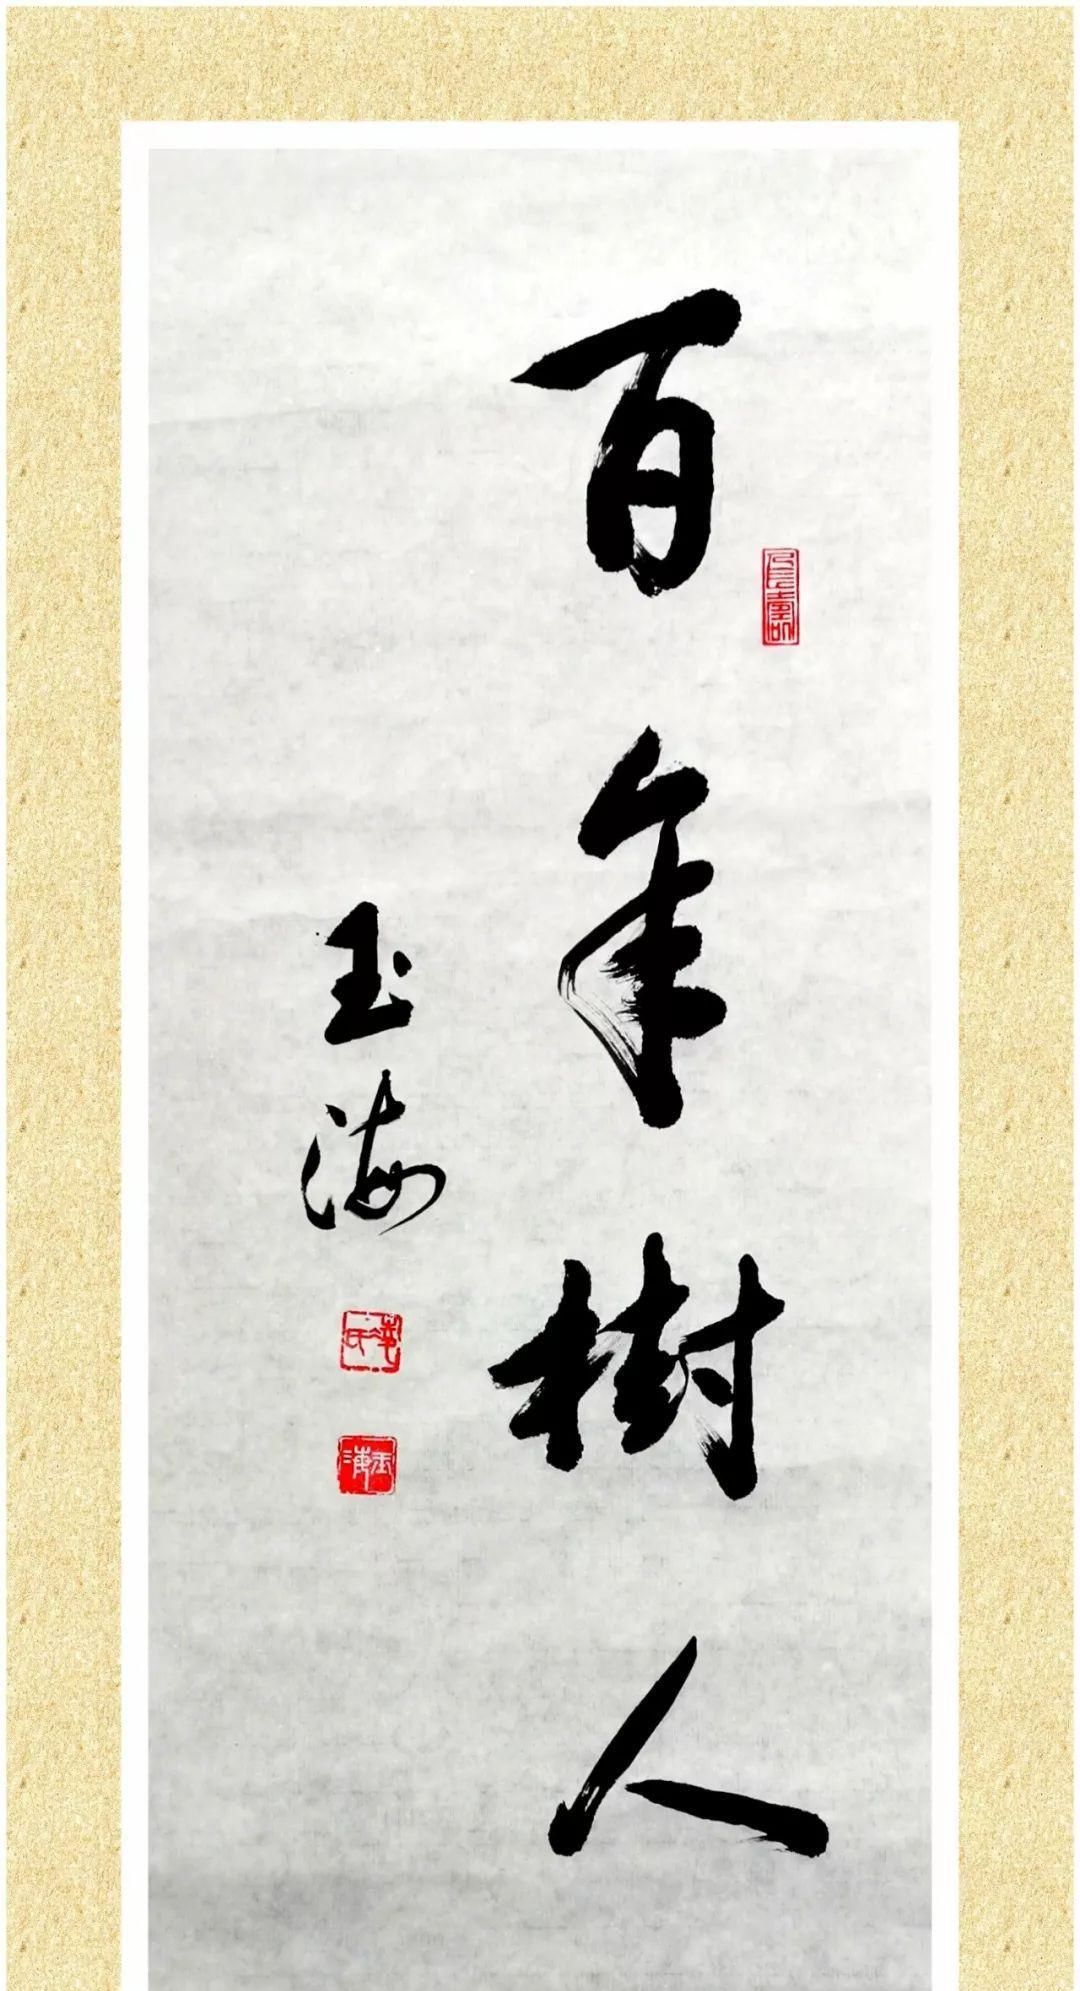 百年樹人
玉海
玉海